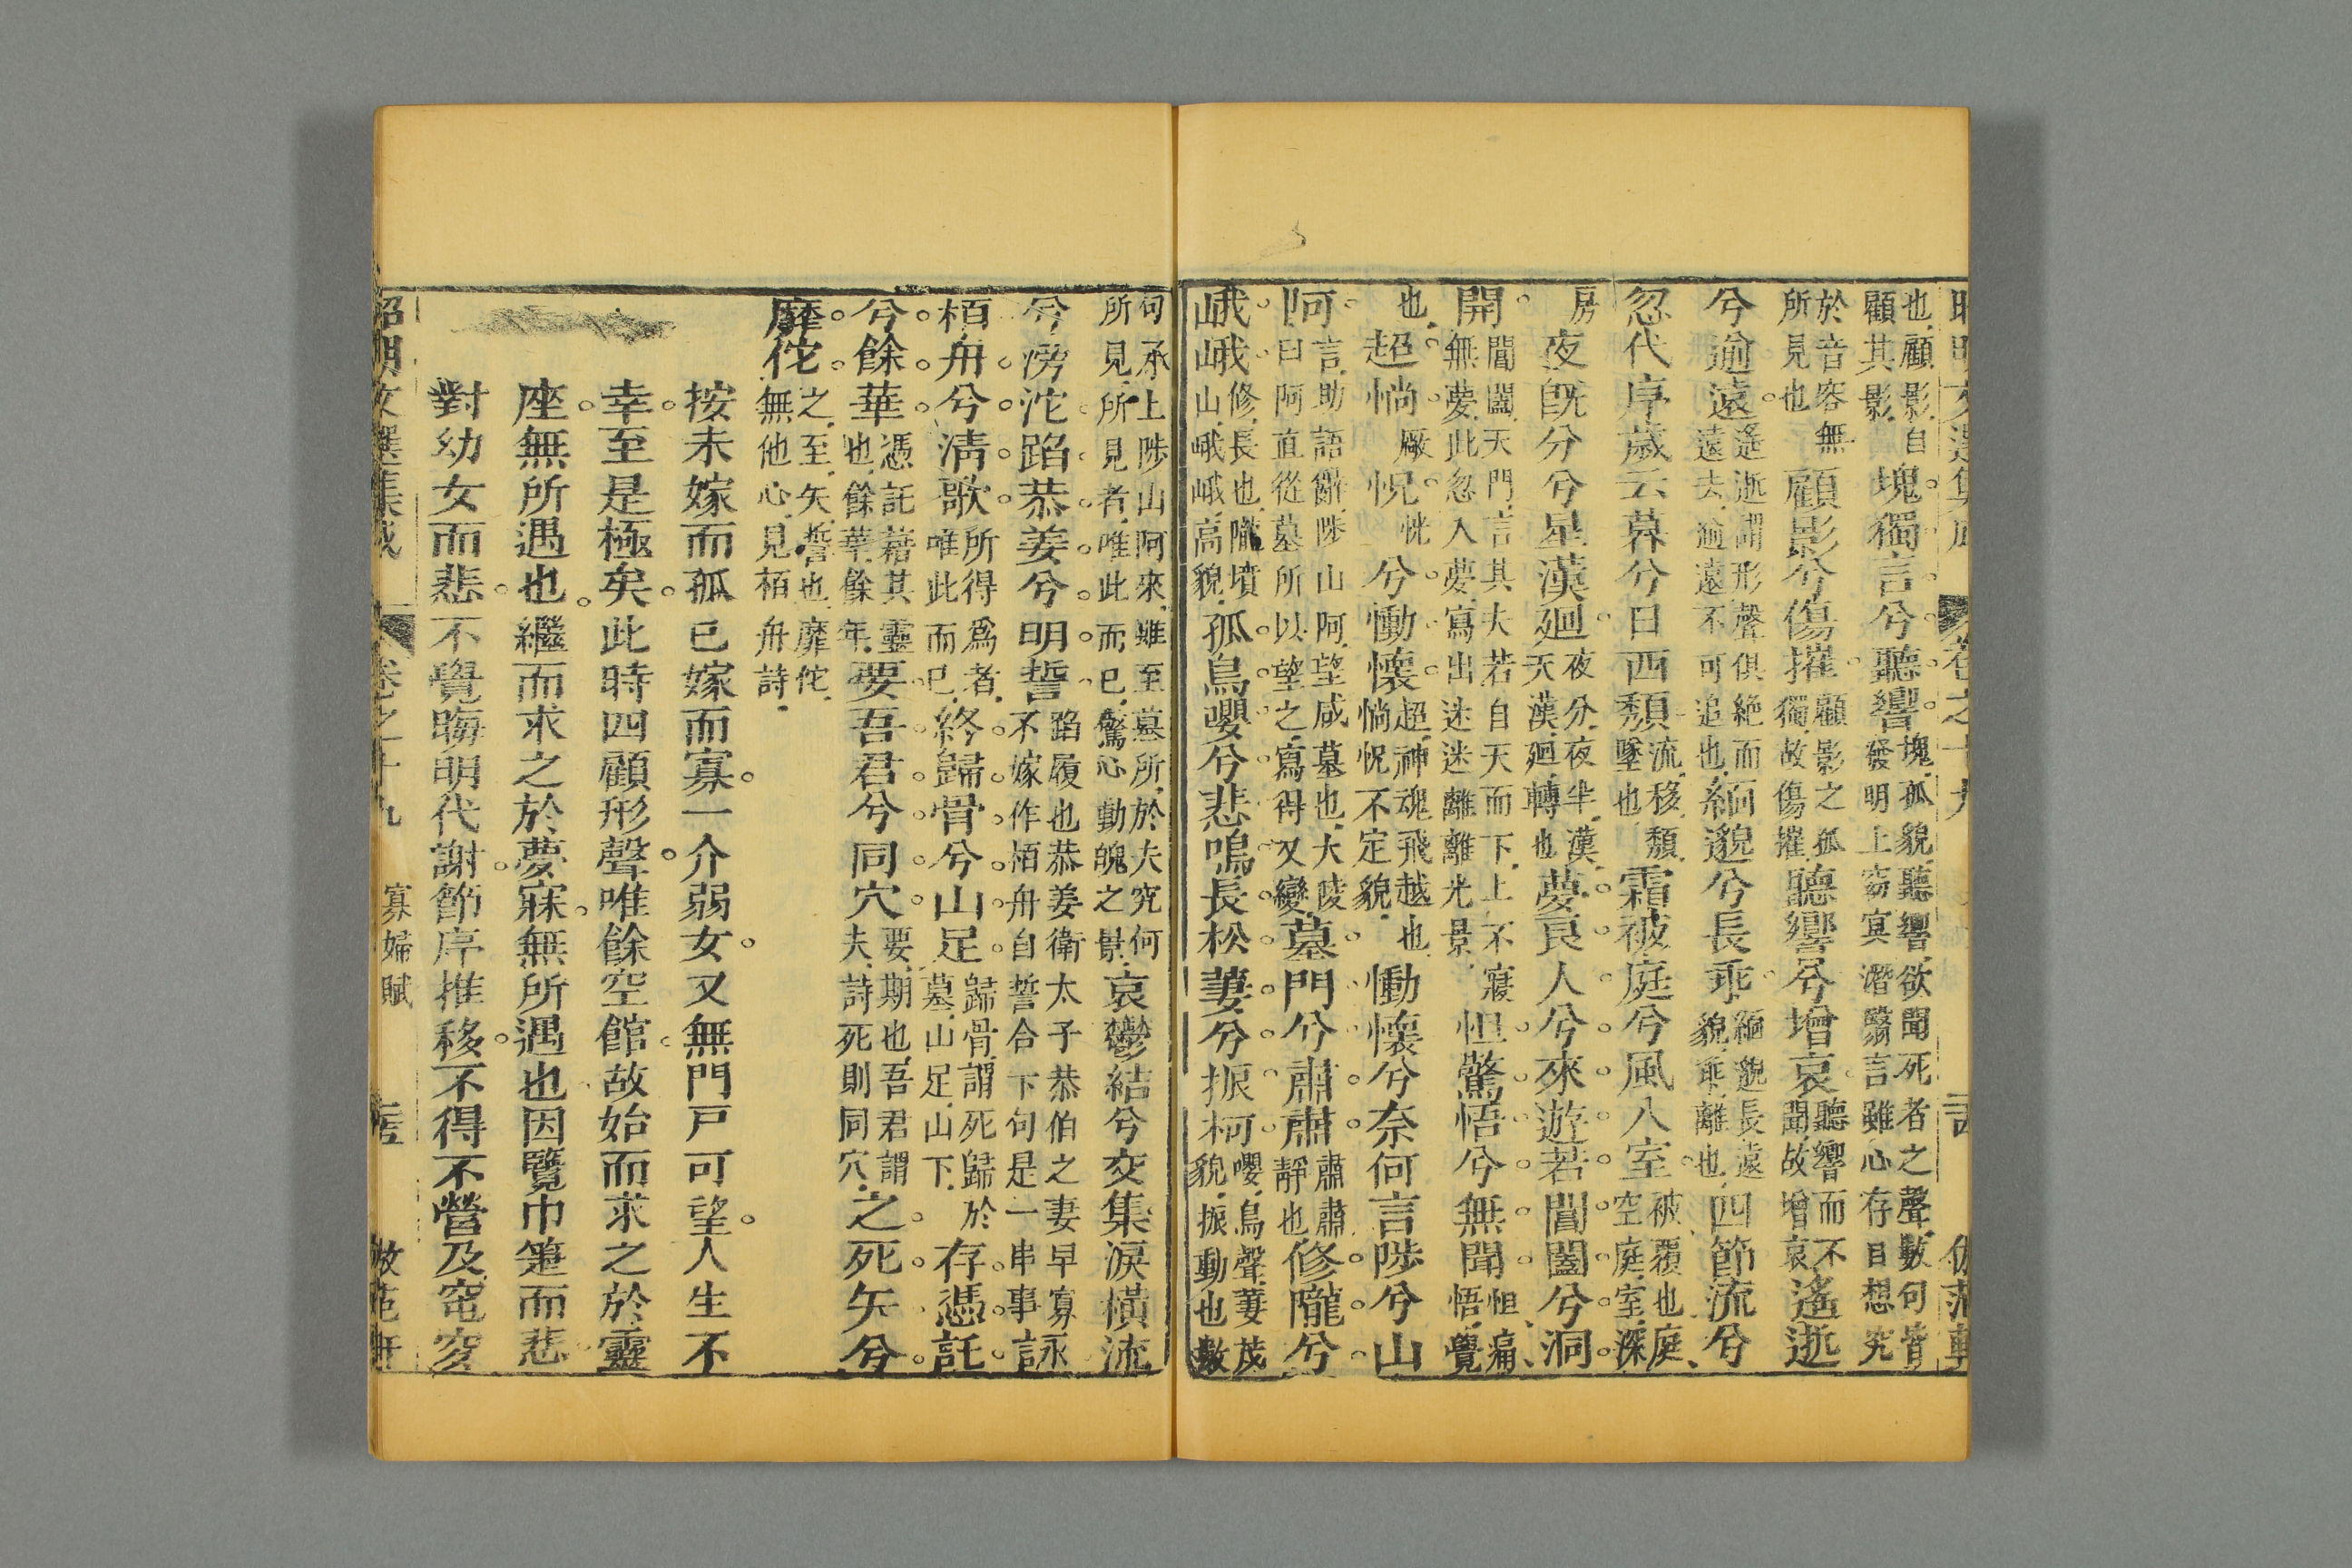 也顧影自顧其影塊獨言兮聽響塊孤貌聽響欲聞死者之聲數句皆發明上窈冥潛翳言雖心存目想究
於音容無所見也顧影兮傷摧顧影之孤獨故傷摧聽響兮增哀聽響而不聞故增哀遙逝
兮逾遠遙逝謂形聲俱絕而遠去逾遠不可追也緬邈兮長乖緬邈長遠貌乖離也四節流兮
忽代序歲云暮兮日西頹流移頹墜也霜被庭兮風入室被覆也庭空庭室深
房夜旣分兮星漢廻夜分夜半漢天漢廻轉也夢良人兮來遊若閶闔兮洞
開閶闔天門言其夫若自天而下上不寢無夢此忽入夢寫出迷迷離離光景怛驚悟兮無聞怛痛悟覺
也超惝厰怳恍兮慟懷超神魂飛越也惝怳不定貌慟懷兮奈何言陟兮山
阿言助語辭陟山阿望咸墓也大陵曰阿直從墓所以望之寫得又變墓門兮肅肅肅肅靜也修隴兮
峨峨修長也隴墳山峨峨高貌孤鳥嚶兮悲鳴長松萋兮振柯嚶鳥聲萋茂貌振動也數
句承上陟山阿來雖至墓所於夫究何所見所見者唯此而已驚心動魄之景哀鬱結兮交集淚橫流
兮滂沱蹈恭姜兮明誓蹈履也恭姜衛太子恭伯之妻早寡不嫁作栢舟自誓合下句是一串事詠
栢舟兮淸歌所得爲者唯此而已終歸骨兮山足歸骨謂死歸於墓山足山下存憑託
兮餘華憑託藉其靈也餘華餘年要吾君兮同穴要期也吾君謂夫詩死則同穴之死矢兮
靡佗之至矢誓也靡佗無他心見栢舟詩
按未嫁而孤已嫁而寡一介弱女又無門戸可望人生不
幸至是極矣此時四顧形聲唯餘空館故始而求之於靈
座無所遇也繼而求之於夢寐無所遇也因覽巾箑而悲
對幼女而悲不覺晦明代謝節序推移不得不營及窀穸
昭明文選集成 卷之十九 寡婦賦